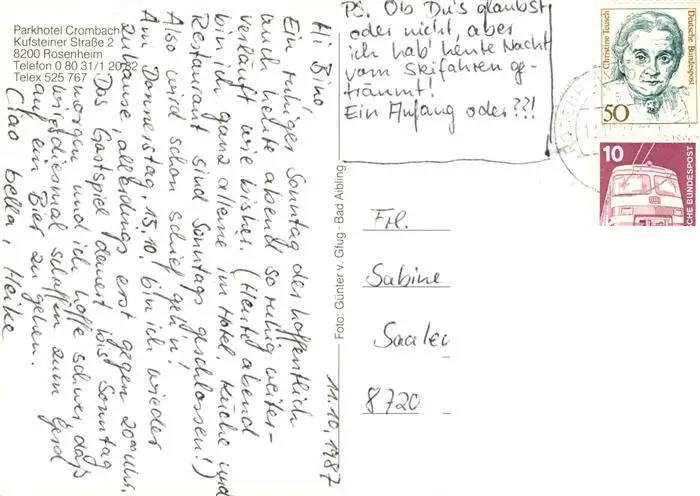 Parkhotel Crombach
Kufsteiner Straße 2
8200 Rosenheim
Telefon 0 80 31/1 20 82
Telex 525 767
11.10.1987
Hi Bine
Ein ruhiger Sonntag der hoffentlich
auch heute abend so ruhig weiter-
verläuft wie bisher. (Heute abend
bin ich ganz alleine im Hotel, Küche und
Restaurant sind Sonntags geschlossen!)
Also wird schon schief geh'n!
Am Donnerstag, 15.10. bin ich wieder
zuhause, allerdings erst gegen 20⁰⁰ Uhr.
Das Gastspiel dauert bis Sonntag
morgen und ich hoffe schwer, daß
wir's diesmal schaffen zum Gerd
auf ein Bier zu gehen.
Ciao bella, Heike
PS. Ob Du's glaubst
oder nicht, aber
ich hab' heute Nacht
vom Skifahren ge-
träumt!
Ein Anfang oder??!
Foto: Günter v. Glug · Bad Aibling
Christine Teusch
Deutsche Bundespost
50
10
CHE BUNDESPOST
Frl.
Sabine
8720